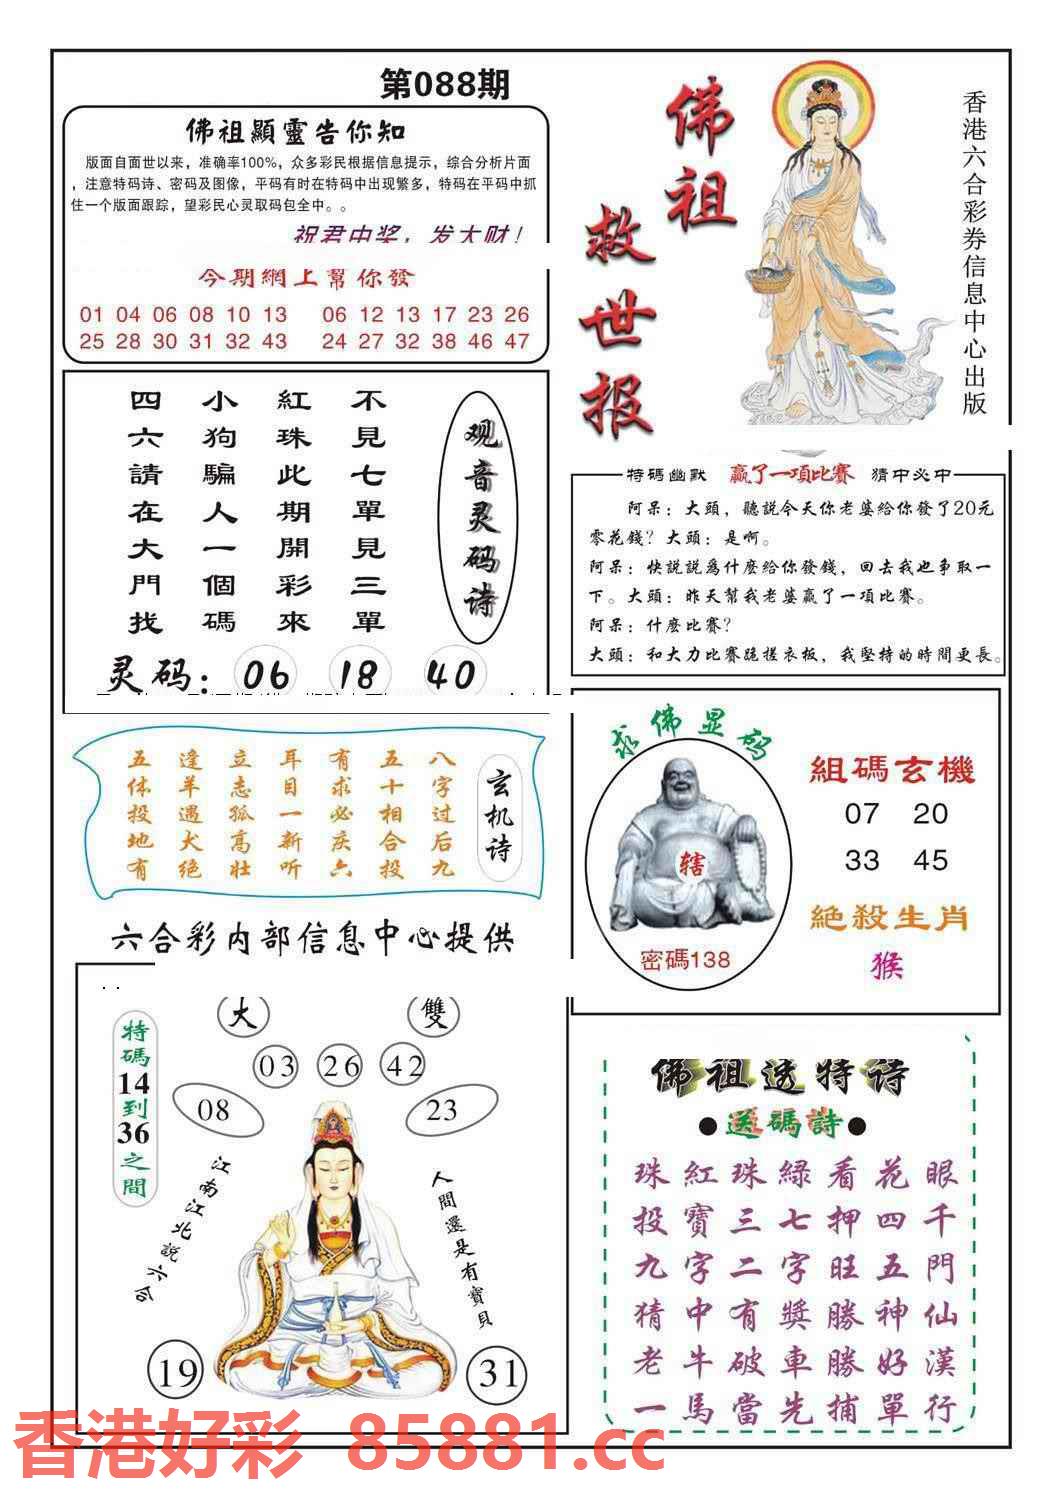 第088期
佛祖顯靈告你知
版面自面世以来，准确率100%，众多彩民根据信息提示，综合分析片面
，注意特码诗、密码及图像，平码有时在特码中出现繁多，特码在平码中抓
住一个版面跟踪，望彩民心灵取码包全中。。
祝君中奖，发大财！
今期網上幫你發
01 04 06 08 10 13 06 12 13 17 23 26
25 28 30 31 32 43 24 27 32 38 46 47
佛祖
救世报
香港六合彩券信息中心出版
观音灵码诗
不見七單見三單
紅珠此期開彩來
小狗騙人一個碼
四六請在大門找
灵码：06 18 40
特碼幽默 贏了一項比賽 猜中必中
阿呆：大頭，聽説今天你老婆給你發了20元
零花錢？大頭：是啊。
阿呆：快説説爲什麽給你發錢，回去我也争取一
下。大頭：昨天幫我老婆贏了一項比賽。
阿呆：什麽比賽？
大頭：和大力比賽跪搓衣板，我堅持的時間更長。
玄机诗
八字过后九
五十相合投
有求必庆六
耳目一新听
立志孤高壮
逢羊遇犬绝
五体投地有
求佛显码
辖
密碼138
組碼玄機
07 20
33 45
絕殺生肖
猴
六合彩内部信息中心提供
特碼14到36之間
大 雙
03 26 42
08 23
江南江北説六合
人間還是有寶貝
19 31
佛祖透特诗
●送碼詩●
珠紅珠緑看花眼
投寶三七押四千
九字二字旺五門
猜中有獎勝神仙
老牛破車勝好漢
一馬當先捕單行
香港好彩 85881.cc